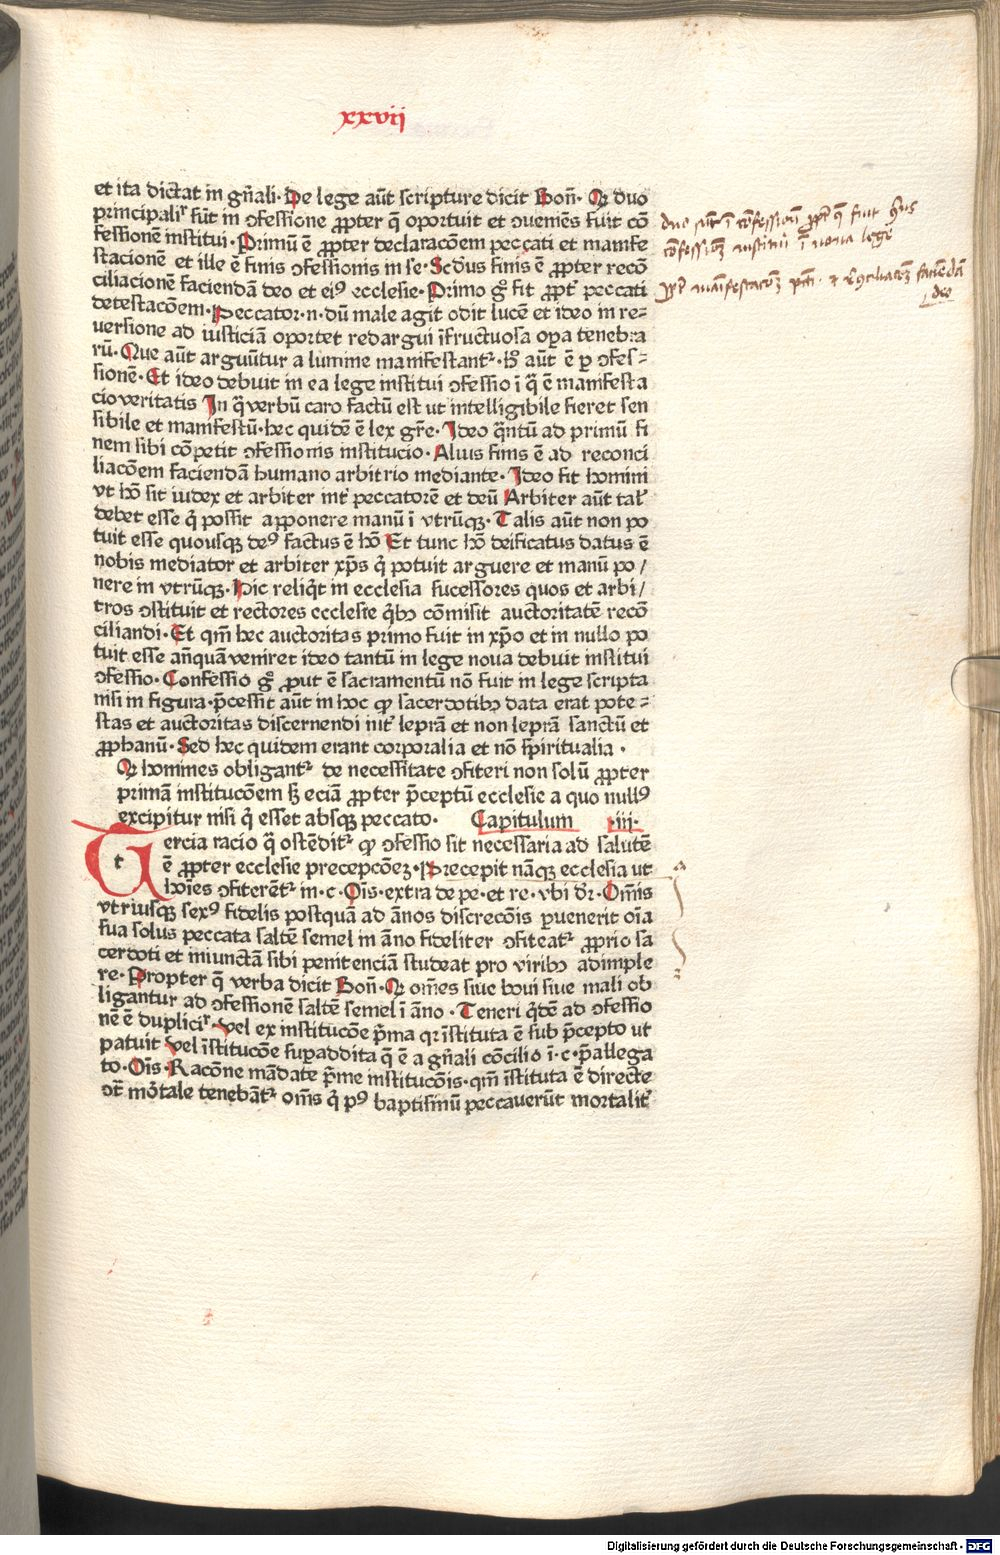 xxvij
et ita dictat in gñali· De lege aũt scripture dicit Boñ· Q duo
principalir̃ sũt in ↄfessione ꝓpter q̃ oportuit et ↄueniẽs fuit cõ
fessionẽ institui· Primũ ẽ ꝓpter declaracõem peccati et manife
stacionẽ et ille ẽ finis ↄfessionis in se· Scd̾us finis ẽ ꝓpter recõ
ciliacionẽ faciendã deo et eiꝰ ecclesie· Primo gͦ fit ꝓpt̾ peccati
detestacõem· Peccator·n·dũ male agit odit lucẽ et ideo in re⸗
uersione ad iusticiã oportet redargui ĩfructuosa oꝑa tenebra
rũ· Que aũt arguũtur a lumine manifestantᷣ· hͦ aũt ẽ ꝑ ↄfes⸗
sionẽ· Et ideo debuit in ea lege institui ↄfessio ĩ q̃ ẽ manifesta
cio veritatis In q̃ verbũ caro factũ est ut intelligibile fieret sen
sibile et manifestũ· hec quidẽ ẽ lex gr̃e· Ideo q̃ntũ ad primũ fi
nem sibi cõpetit ↄfessionis institucio· Alius finis ẽ ad reconci
liacõem faciendã humano arbitrio mediante· Ideo fit homini
vt hõ sit iudex et arbiter int̾ peccatorẽ et deũ Arbiter aũt tal̾
debet esse q̇ possit apponere manũ ĩ vtrũqꝫ· Talis aũt non po
tuit esse quousqꝫ deꝰ factus ẽ hõ Et tunc hõ deificatus datus ẽ
nobis mediator et arbiter xp̃s q̇ potuit arguere et manũ po/
nere in vtrũqꝫ· Hic reliq̇t in ecclesia sucessores quos et arbi/
tros ↄstituit et rectores ecclesie q̇bꝫ cõmisit auctoritatẽ recõ
ciliandi· Et qm̃ hec auctoritas primo fuit in xp̃o et in nullo po
tuit esse añquã veniret ideo tantũ in lege noua debuit institui
ↄfessio· Confessio gͦ prout ẽ sacramentũ nõ fuit in lege scripta
nisi in figura· p̃cessit aũt in hoc ꝙ sacerdotibꝫ data erat pote⸗
stas et auctoritas discernendi int̾ leprã et non leprã sanctũ et
ꝓphanũ· Sed hec quidem erant corporalia et nõ spiritualia·
Q homines obligantᷣ de necessitate ↄfiteri non solũ ꝓpter
primã institucõem sꝫ eciã ꝓpter p̃ceptũ ecclesie a quo nullꝰ
excipitur nisi q̇ esset absqꝫ peccato· Capitulum ·iij·
Tercia racio q̃ ostẽditᷣ ꝙ ↄfessio sit necessaria ad salutẽ
ẽ ꝓpter ecclesie precepcõeꝫ· Precepit nãqꝫ ecclesia ut
hoĩes ↄfiterẽtᷣ in·c·Oĩs·extra de pe·et re·vbi dr̃· Omĩs
vtriusqꝫ sexꝰ fidelis postquã ad ãnos discrecõis ꝑuenerit oĩa
sua solus peccata saltẽ semel in ãno fideliter ↄfiteatᷣ ꝓprio sa
cerdoti et iniunctã sibi penitenciã studeat pro viribꝫ adimple
re· Propter q̃ verba dicit Boñ· Q omẽs siue boni siue mali ob
ligantur ad ↄfessionẽ saltẽ semel ĩ ãno· Teneri q̇dẽ ad ↄfessio
nẽ ẽ duplicir̃· vel ex institucõe p̃ma qꝛ ĩstituta ẽ sub p̃cepto ut
patuit vel ĩstitucõe suꝑaddita q̃ ẽ a gñali cõcilio ĩ·c·p̃allega
to· Oĩs· Racõne mãdate p̃me institucõis· qm̃ ĩstituta ẽ directe
ↄt̾ mõtale tenebãtᷣ omẽs q̇ pꝰ baptismũ peccauerũt mortalit̾